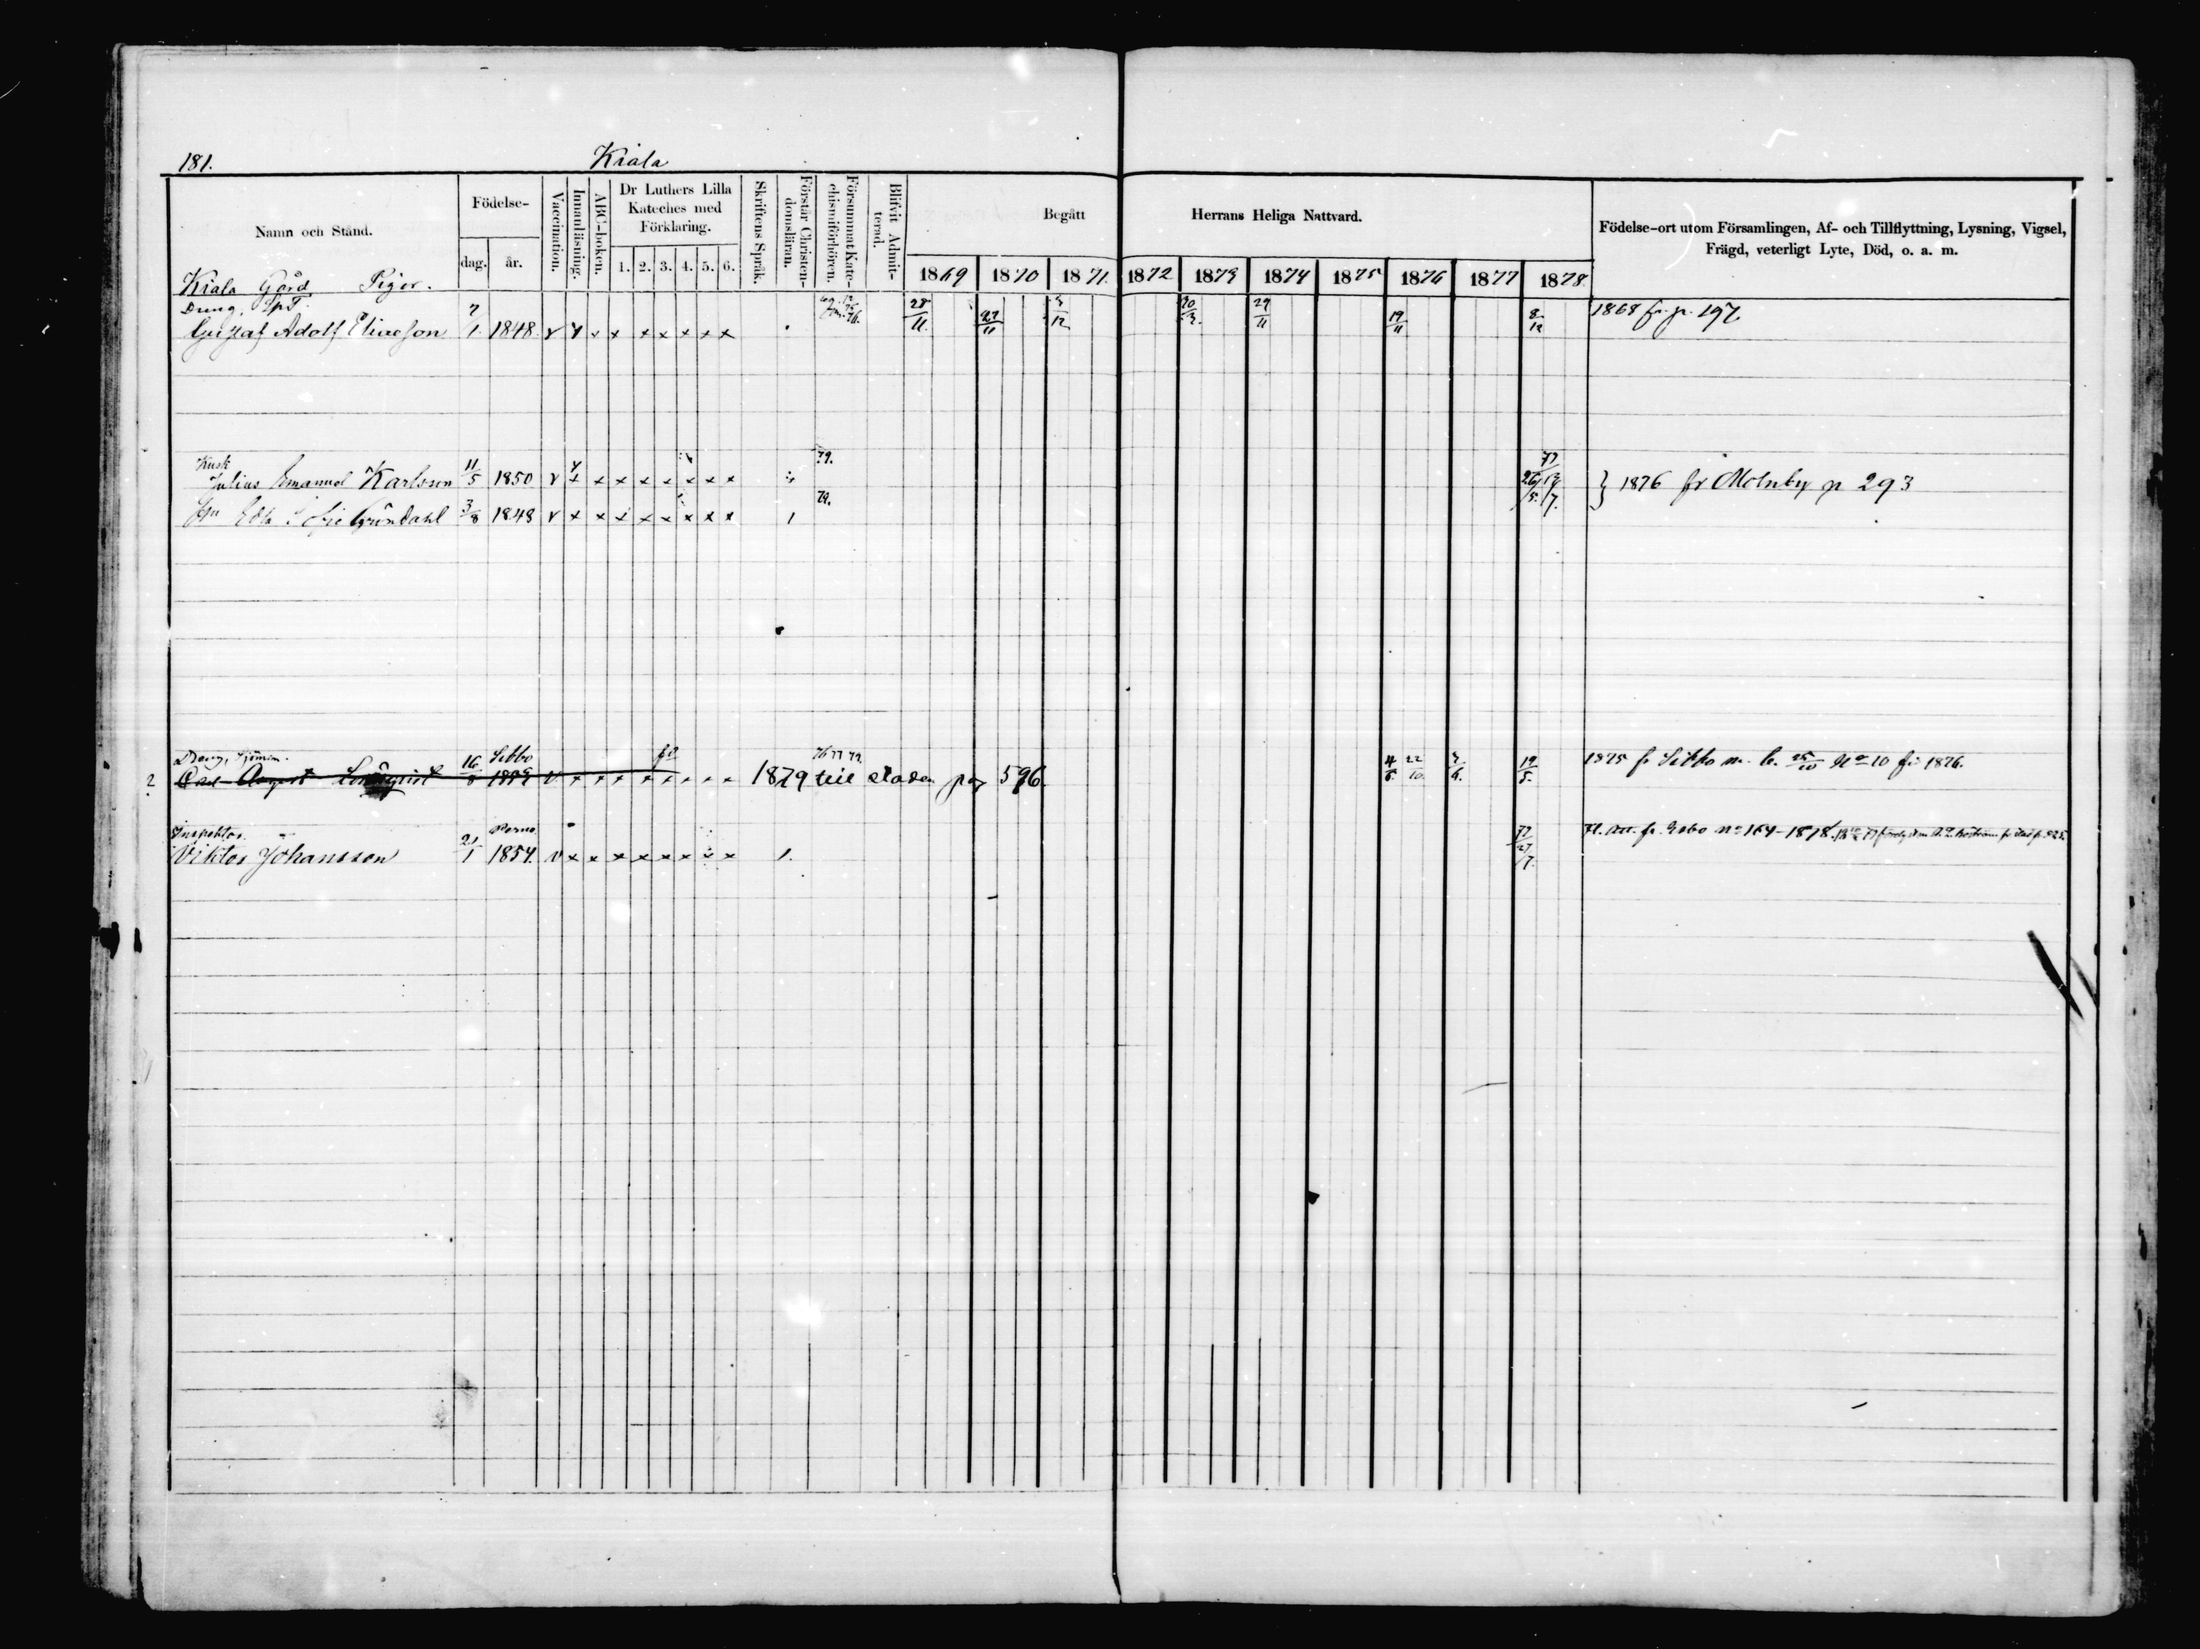 181. Kiala
Namn och Stånd. Födelse- dag. år. Vaccination. Innanläsning. ABC-boken. Dr Luthers Lilla Kateches med Förklaring. 1. 2. 3. 4. 5. 6. Skriftens Språk. Förstår Christendomsläran. Försummat Katechismiförhören. Blifvit Admitterad. Begått Herrans Heliga Nattvard. Födelse-ort utom Församlingen, Af- och Tillflyttning, Lysning, Vigsel, Frägd, veterligt Lyte, Död, o. a. m.
1869 1870 1871. 1872 1873 1874 1875 1876 1877 1878.
Kiala Gård Pigor.
Dreng,
Gustaf Adolf Eliasson 7/1 1848. v x x x x x x x 28/11. 27/11 3/12 30/3. 29/11 19/11 8/12 1868 fr. p. 197
Kusk 79.
Julius Emanuel Karlsson 11/5 1850 v x x x x x x x x } 1876 fr Molnby p 293
79.
Edla Sofie Gröndahl 3/8 1848 v x x x x x x x x 1
Dreng, Sibbo 76 77 79.
2 Carl August Lindqvist 16/8 1859 v x x x x x x x x 1879 till staden pag 596. 4/6. 22/10. 3/6. 19/5. 1875 fr Sibbo m. b. 25/10 No 10 för 1876.
Inspektor. Perno
Viktor Johansson 21/1 1854. v x x x x x x x x 1. 77 27/7. fr. Esbo no 164-1878.